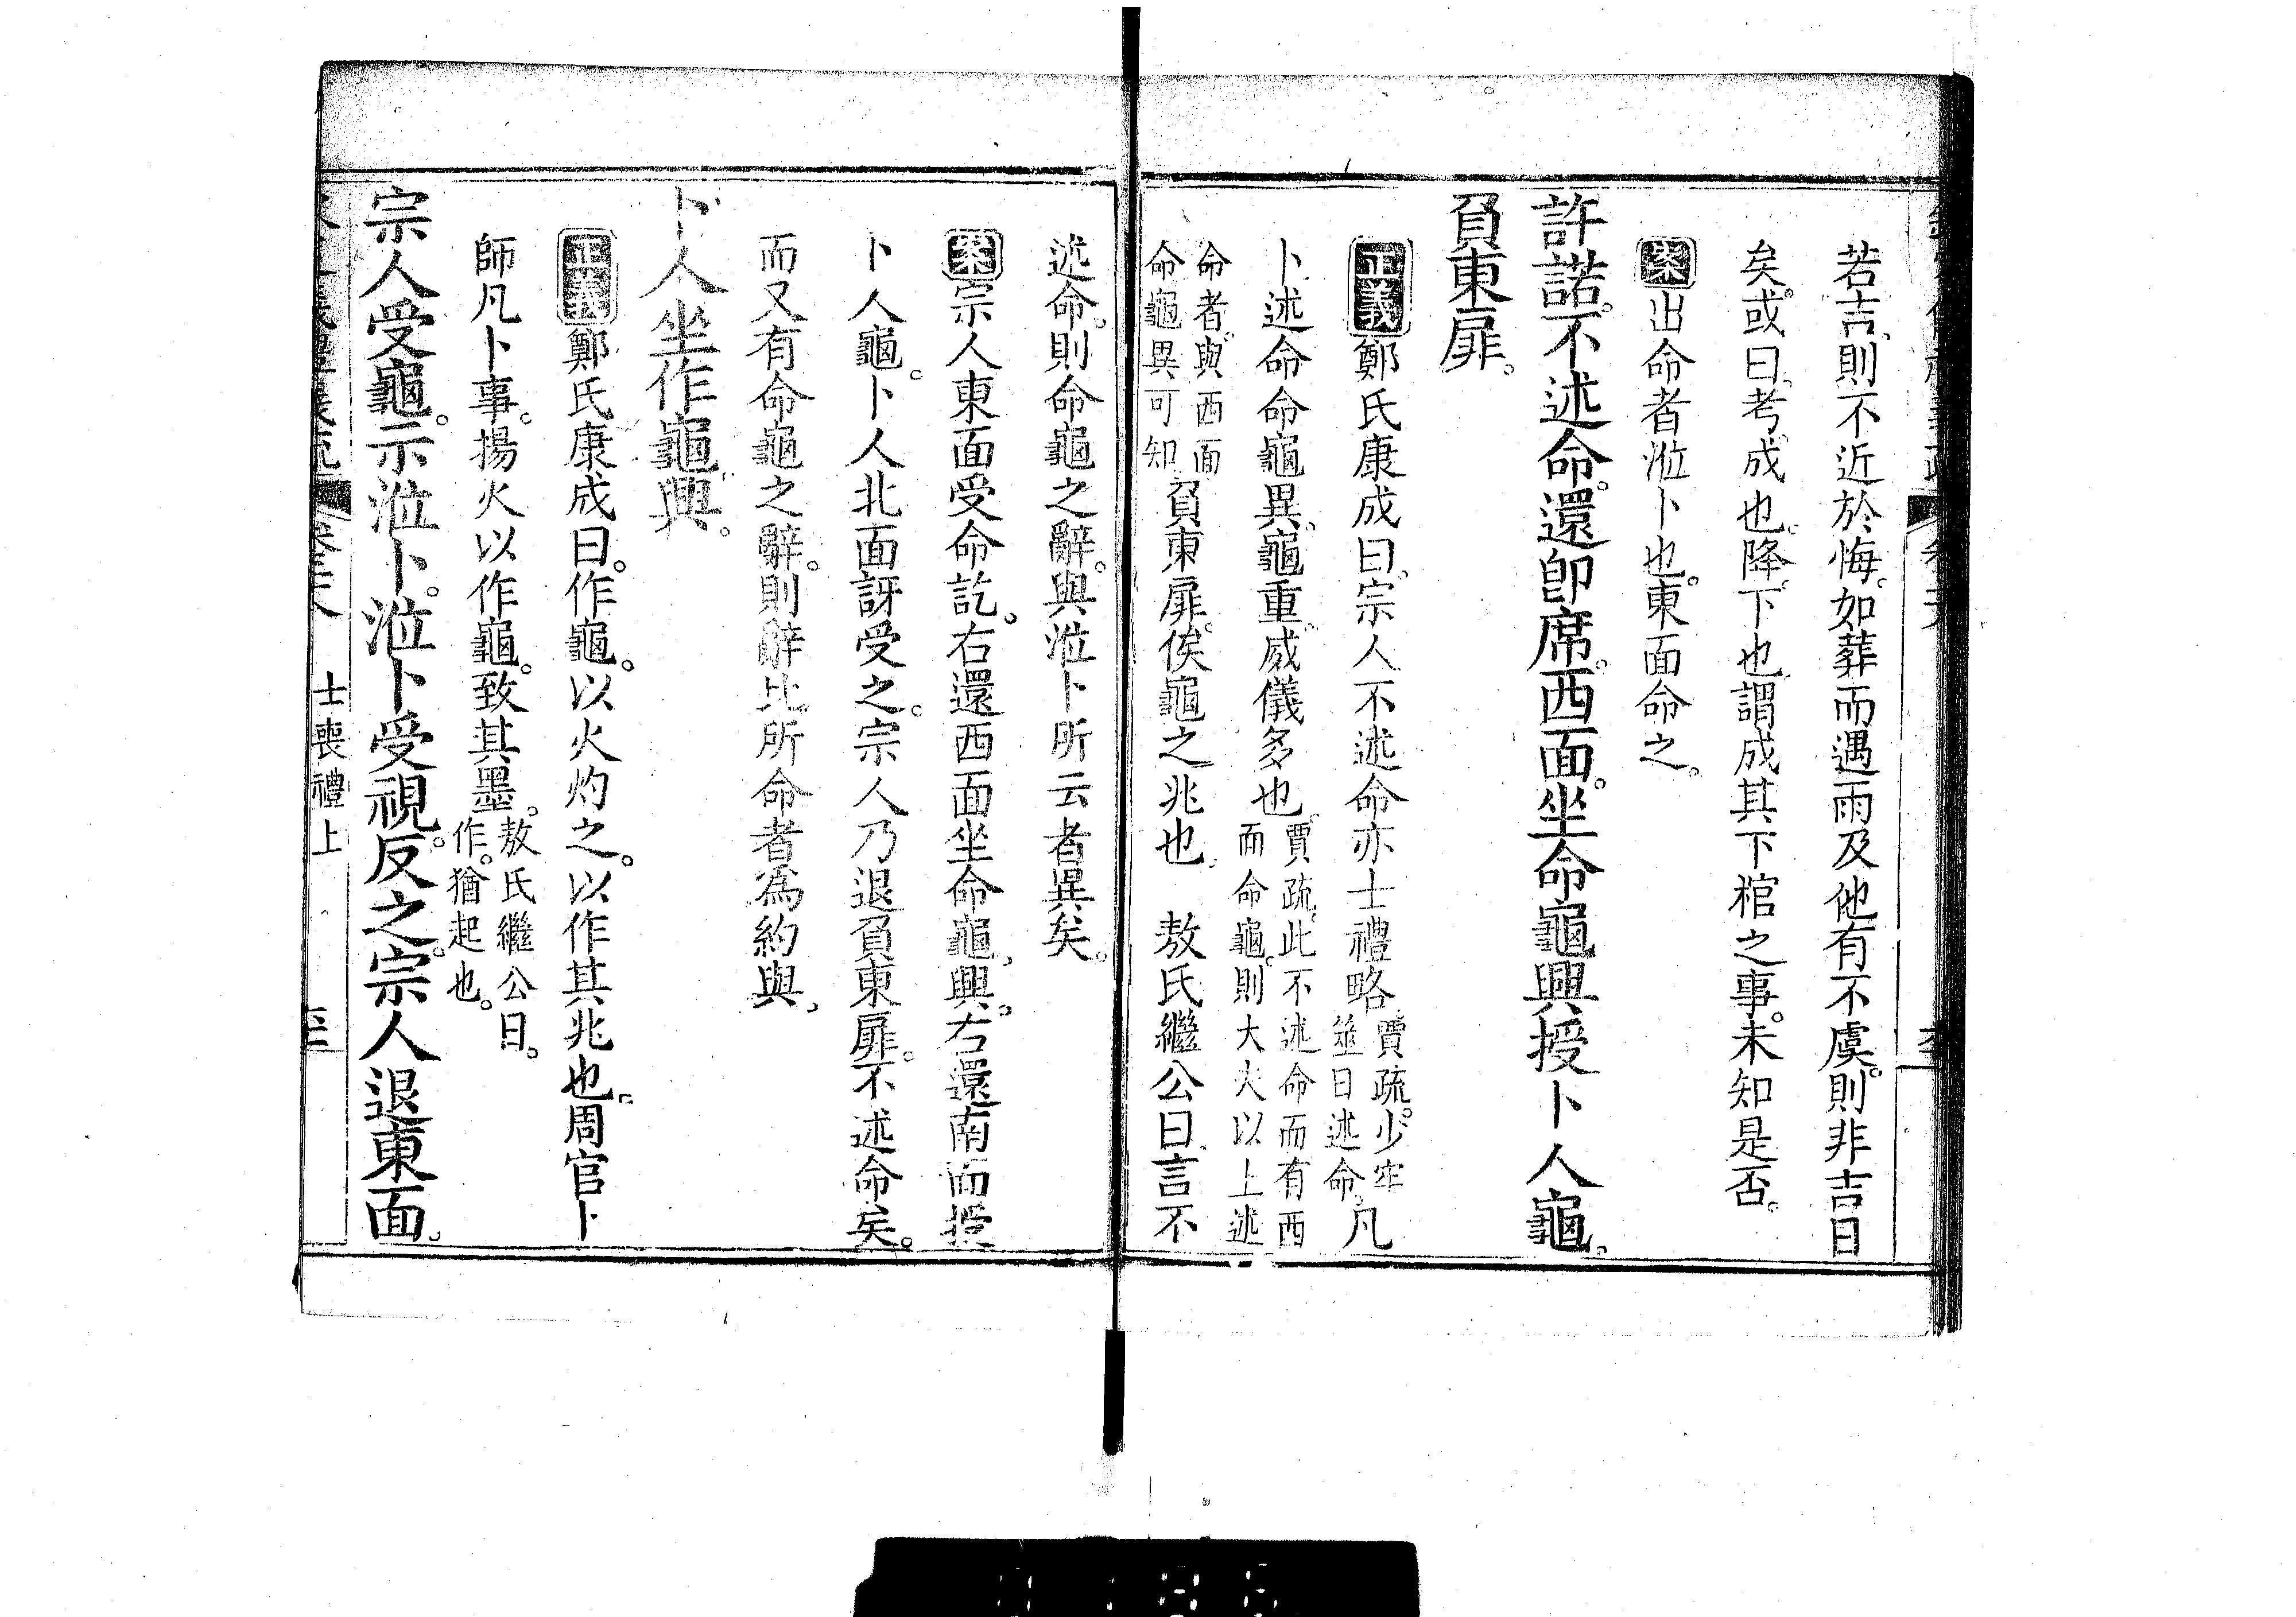 若吉則不近於悔。如葬而遇雨及他有不虞。則非吉日
矣。或曰。考。成也。降。下也。謂成其下棺之事。未知是否。
案出命者涖卜也。東面命之。
許諾。不述命。還卽席。西面。坐命龜。興授卜人龜。
負東扉。
正義鄭氏康成曰。宗人不述命。亦士禮略。賈疏。少牢筮日述命。凡
卜述命命龜異。龜重。威儀多也。賈疏。此不述命而有西面命龜。則大夫以上述
命者。與西面命龜異可知負東扉。俟龜之兆也。 敖氏繼公曰。言不
述命。則命龜之辭。與涖卜所云者異矣。
案宗人東面受命訖。右還西面坐命龜。興。右還南面授
卜人龜。卜人北面訝受之。宗人乃退負東扉。不述命矣。
而又有命龜之辭。則辭比所命者為約與。
卜人坐作龜。興。
正義鄭氏康成曰。作龜。以火灼之。以作其兆也。周官卜
師凡卜事。揚火以作龜。致其墨。敖氏繼公曰。作。猶起也。
宗人受龜。示涖卜。涖卜受視。反之。宗人退東面。
士喪禮上